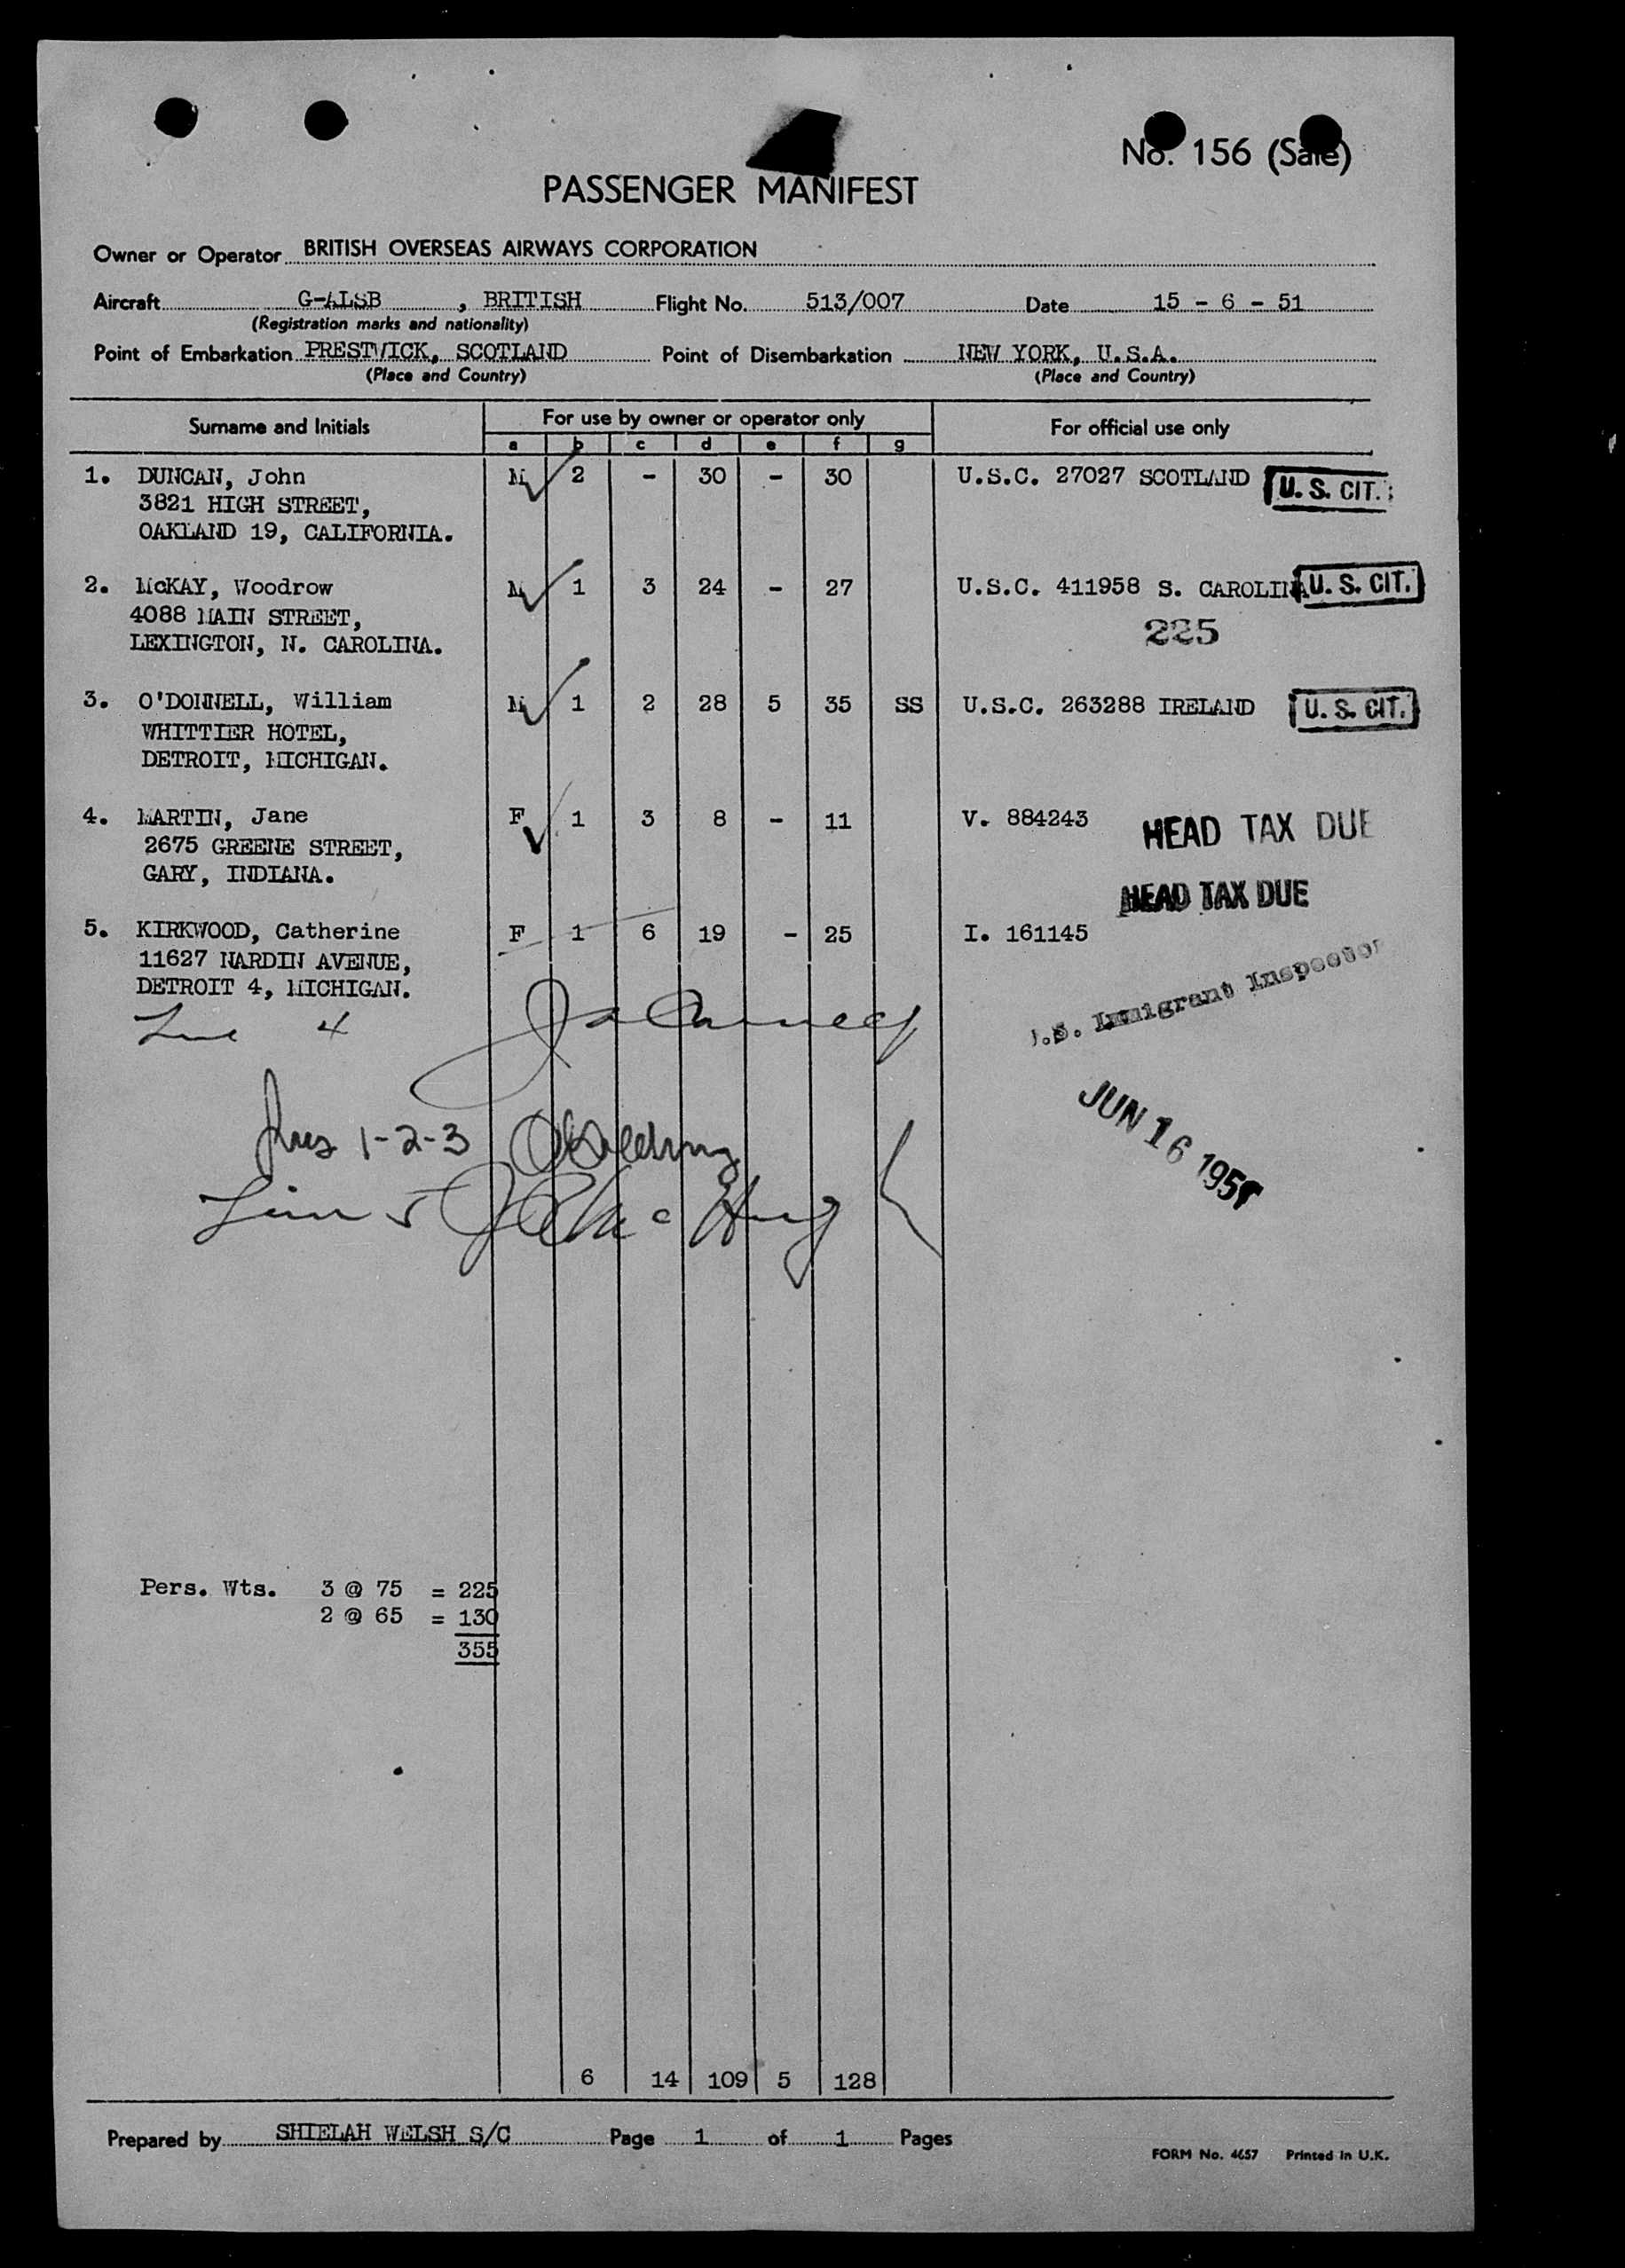 No. 156 (Sale)
PASSENGER MANIFEST
Owner or Operator BRITISH OVERSEAS AIRWAYS CORPORATION
Aircraft G-ALSB , BRITISH Flight No. 513/007 Date 15 - 6 - 51
(Registration marks and nationality)
Point of Embarkation PRESTWICK, SCOTLAND Point of Disembarkation NEW YORK, U.S.A.
(Place and Country) (Place and Country)
Surname and Initials For use by owner or operator only For official use only
a b c d e f g
1. DUNCAN, John M 2 - 30 - 30 U.S.C. 27027 SCOTLAND U. S. CIT.
3821 HIGH STREET,
OAKLAND 19, CALIFORNIA.
2. McKAY, Woodrow M 1 3 24 - 27 U.S.C. 411958 S. CAROLINA U. S. CIT.
4088 MAIN STREET, 225
LEXINGTON, N. CAROLINA.
3. O'DONNELL, William M 1 2 28 5 35 SS U.S.C. 263288 IRELAND U. S. CIT.
WHITTIER HOTEL,
DETROIT, MICHIGAN.
4. MARTIN, Jane F 1 3 8 - 11 V. 884243 HEAD TAX DUE
2675 GREENE STREET,
GARY, INDIANA.
HEAD TAX DUE
5. KIRKWOOD, Catherine F 1 6 19 - 25 I. 161145
11627 NARDIN AVENUE,
DETROIT 4, MICHIGAN.
4
U.S. Immigrant Inspector
JUN 16 1951
1-2-3
5
Pers. Wts. 3 @ 75 = 225
2 @ 65 = 130
355
6 14 109 5 128
Prepared by SHIELAH WELSH S/C Page 1 of 1 Pages
FORM No. 4657 Printed in U.K.